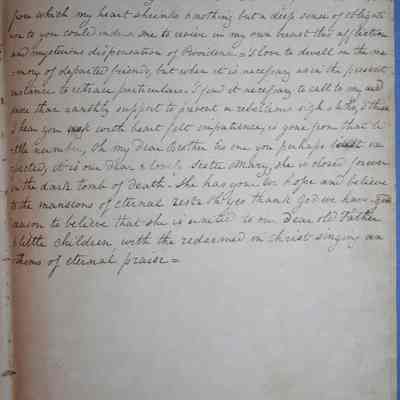 from which my heart shrinks & nothing but a deep sense of obligati
on to you could induce me to revive in my own breast this afflictive
and mysterious dispensation of Providence = I love to dwell on the me
mory of departed friends, but when it is necessary as in the present
instance to retrace particulars I find it necessary to call to my aid
more than earthly support to prevent a rebellious sigh
I hear you with heart felt impatience, is gone from that li
ttle number, Oh my dear Brother tis one you perhaps least ex
pected, it is our dear & lovely sister Mary, she is closed forever
in the dark tomb of death. She has gone we hope and believe
to the mansions of eternal rest. Oh yes thank God we have great
reason to believe that she is united to our dear old Father
& little children with the redeemed on christ singing an
thems of eternal praise =